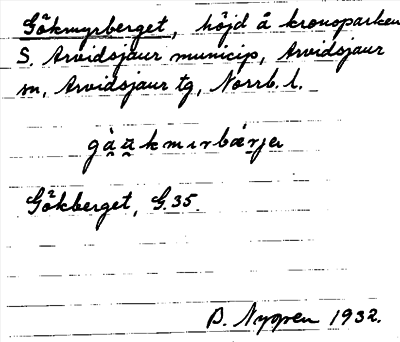 Gökmyrberget, höjd å kronoparken
S. Arvidsjaur municip, Arvidsjaur
sn, Arvidsjaur tg, Norrb. l.
Gökberget, G.35.
B. Nygren 1932.